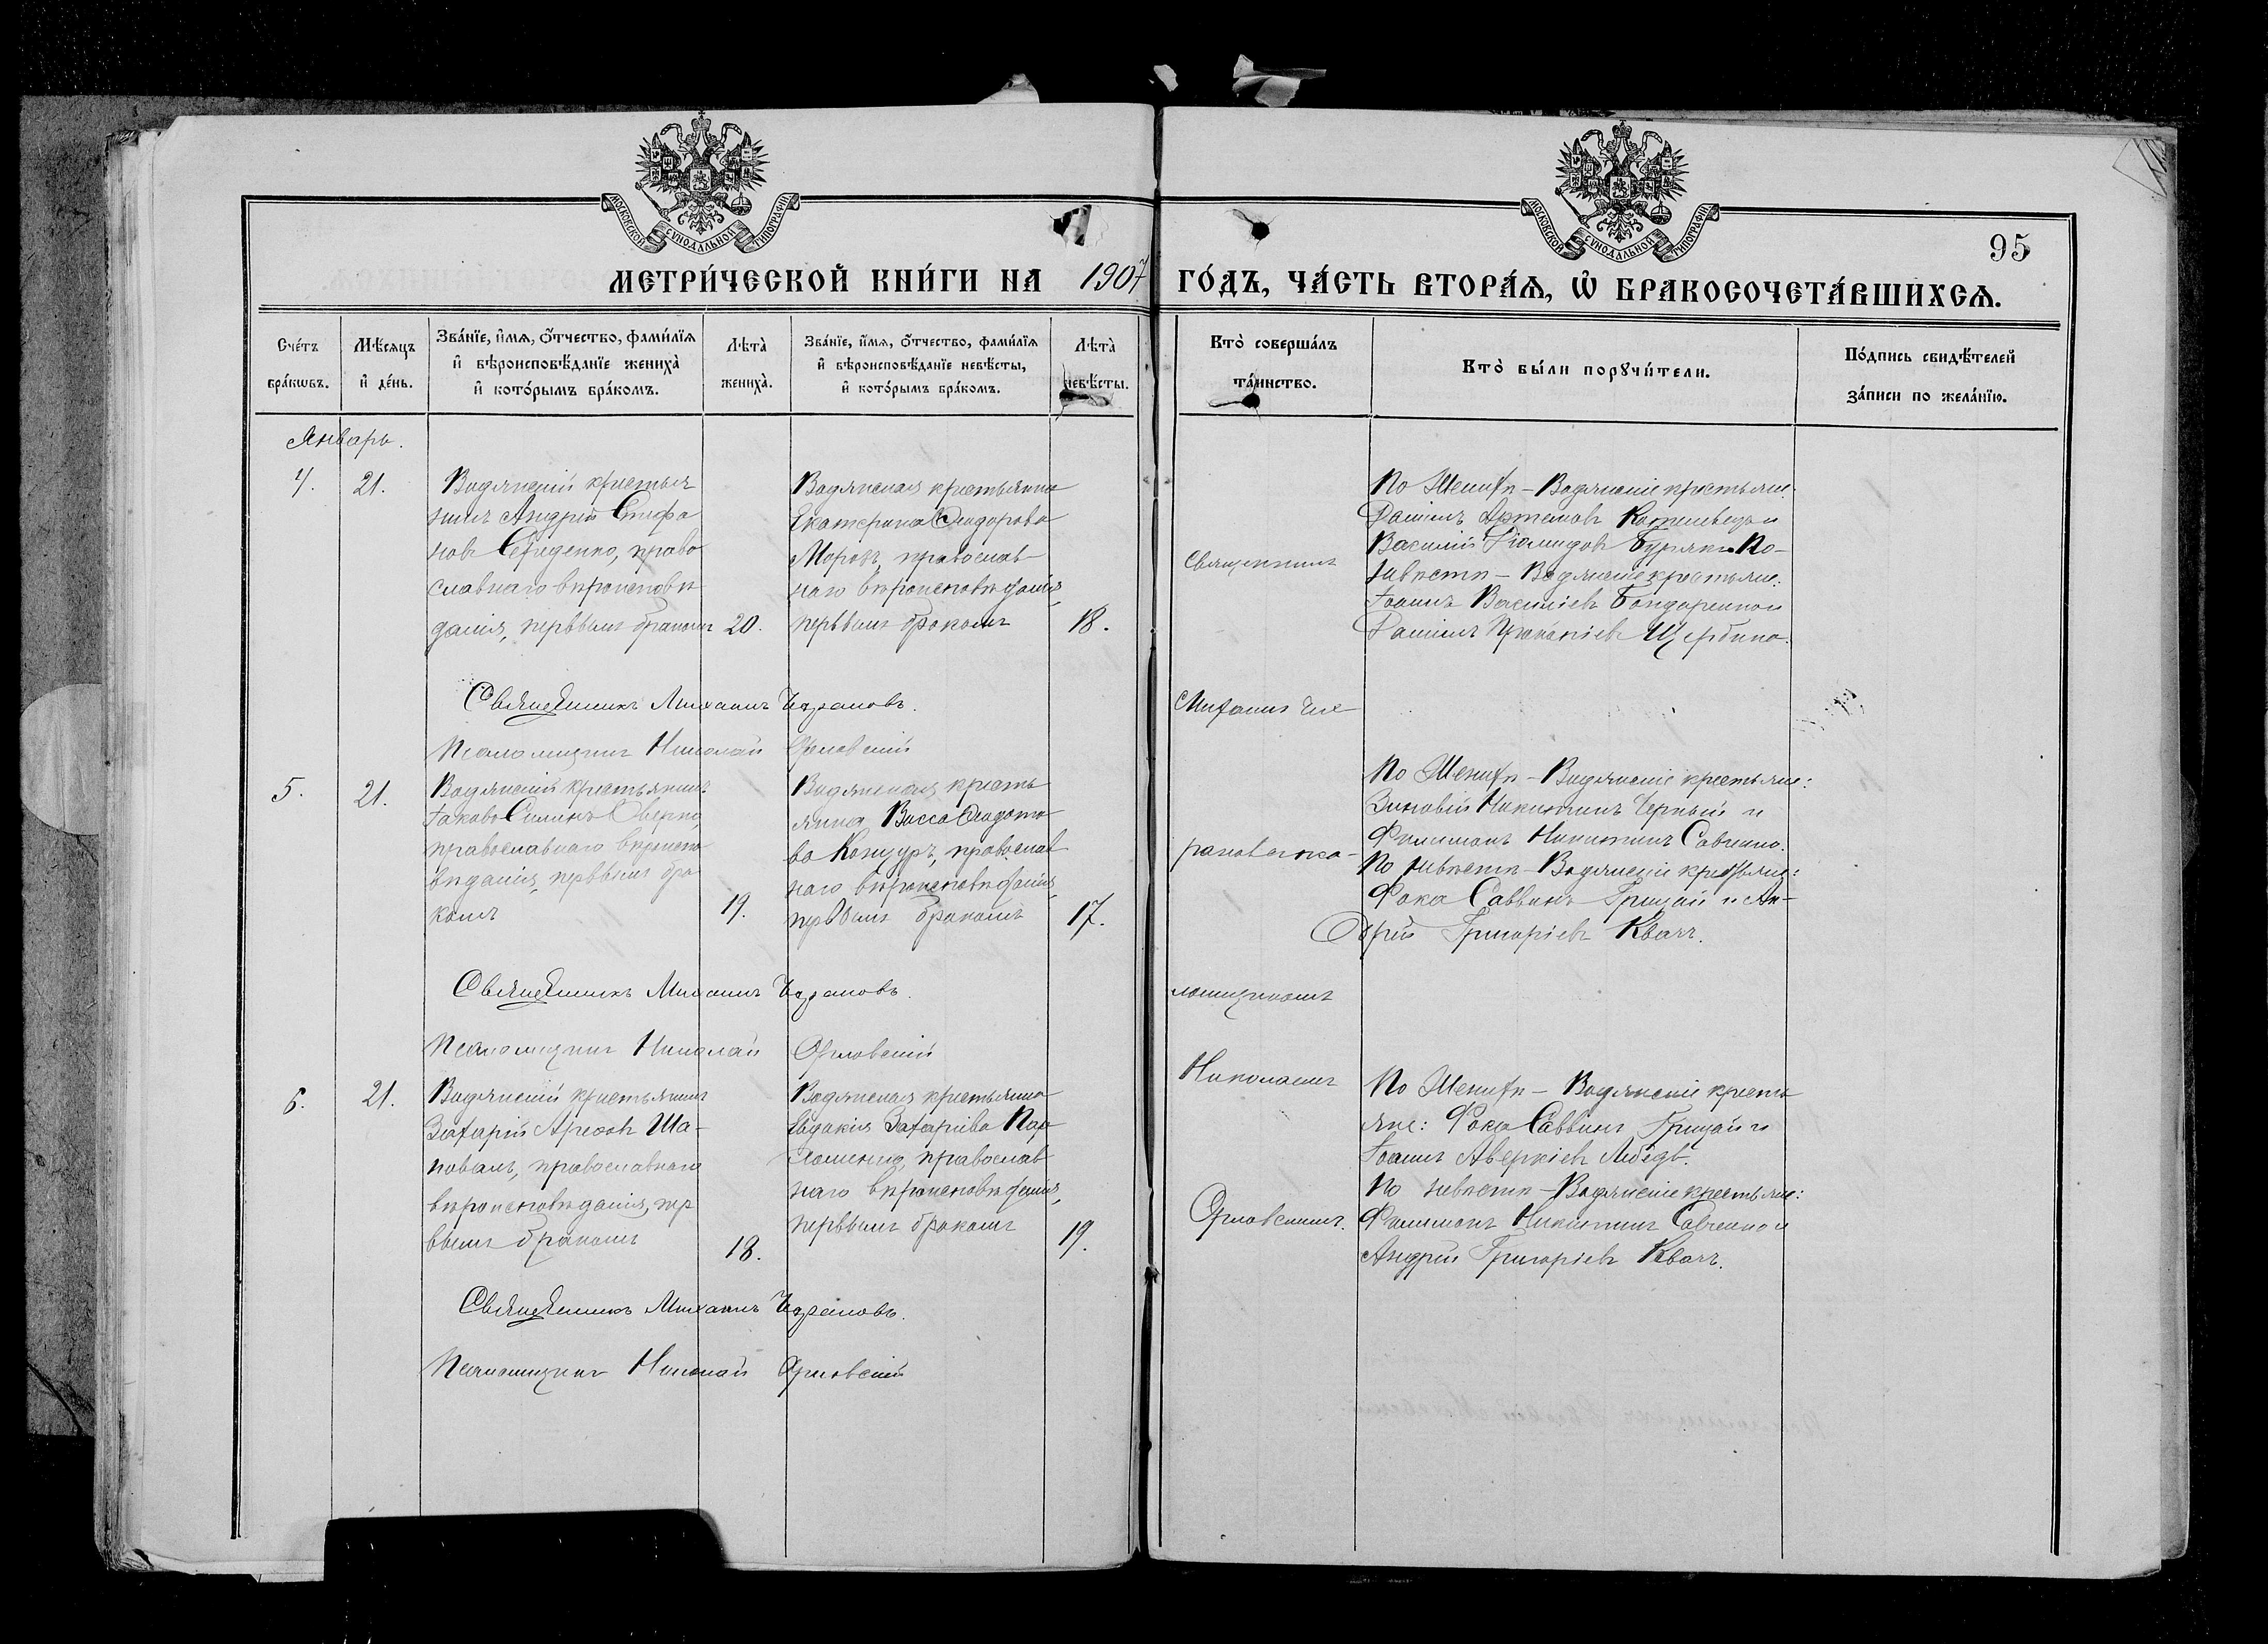 МОСКОВСКОЙ СУНОДАЛЬНОЙ ТИПОГРАФІИ
МОСКОВСКОЙ СУНОДАЛЬНОЙ ТИПОГРАФІИ
95
МЕТРИ́ЧЕСКОЙ КНИ́ГИ НА 1907 ГО́ДЪ, ЧА́СТЬ ВТОРА́Ѧ, Ѡ҆ БРАКОСОЧЕТА́ВШИХСѦ.
Сче́тъ
бра́кѡвъ.
Мѣ́сѧцъ
и҆ де́нь.
Зва́нїе, и҆́мѧ, ѻ҆́тчество, фами́лїѧ
и҆ вѣроисповѣ́данїе жениха̀
и҆ кото́рымъ бра́комъ.
Лѣта̀
жениха̀.
Зва́нїе, и҆́мѧ, ѻ҆́тчество, фами́лїѧ
и҆ вѣроисповѣ́данїе невѣ́сты,
и҆ кото́рымъ бра́комъ.
Лѣта̀
невѣ́сты.
Кто̀ соверша́лъ
та́инство.
Кто̀ бы́ли порꙋчи́тели.
По́дпись свидѣ́телей
за́писи по жела́нїю.
Январь.
4.
21.
Водянскій крестья
нинъ Андрей Стефа
новъ Середенко, право
славнаго вѣроисповѣ
данія, первымъ бракомъ
20.
Водянская крестьянка
Екатерина Ѳеодорова
Морозъ, православ
наго вѣроисповѣданія,
первымъ бракомъ
18.
По Женихѣ – Водянскіе крестьяне:
Даніилъ Артемовъ
Василій
По
невѣстѣ – Водянскіе крестьяне:
Іоаннъ Василіевъ Бондаренко и
Даніилъ Прокопіевъ Щербина.
Священникъ Михаилъ
Псаломщикъ Николай Орловскій
5.
21.
Водянскій крестьянинъ
Іаковъ Силинъ
православнаго вѣроиспо
вѣданія, первымъ бра
комъ
19.
Водянская кресть
янка Васса Ѳеодото
ва Концуръ, православ
наго вѣроисповѣданія,
первымъ бракомъ
17.
По Женихѣ – Водянскіе крестьяне:
Зиновій Никитинъ Черный и
Филимонъ Никитинъ Савченко.
По невѣстѣ – Водянскіе крестьяне:
Фока Саввинъ Грицай и Ан-
дрей Григоріевъ Квачъ.
Священникъ Михаилъ
Псаломщикъ Николай Орловскій
6.
21.
Водянскій крестьянинъ
Захарій Ша-
повалъ, православнаго
вѣроисповѣданія, пер
вымъ бракомъ
18.
Водянская крестьянка
Евдокія Захаріева Пар
хоменко, православ
наго вѣроисповѣданія,
первымъ бракомъ
19.
По Женихѣ – Водянскіе кресть
яне: Фока Саввинъ Грицай и
Іоаннъ Аверкіевъ Лебедь.
По невѣстѣ – Водянскіе крестьяне:
Филимонъ Никитинъ Савченко и
Андрей Григоріевъ Квачъ.
Священникъ Михаилъ
Псаломщикъ Николай Орловскій
Священникъ
Михаилъ
ломщикомъ
Николаемъ
Орловскимъ.